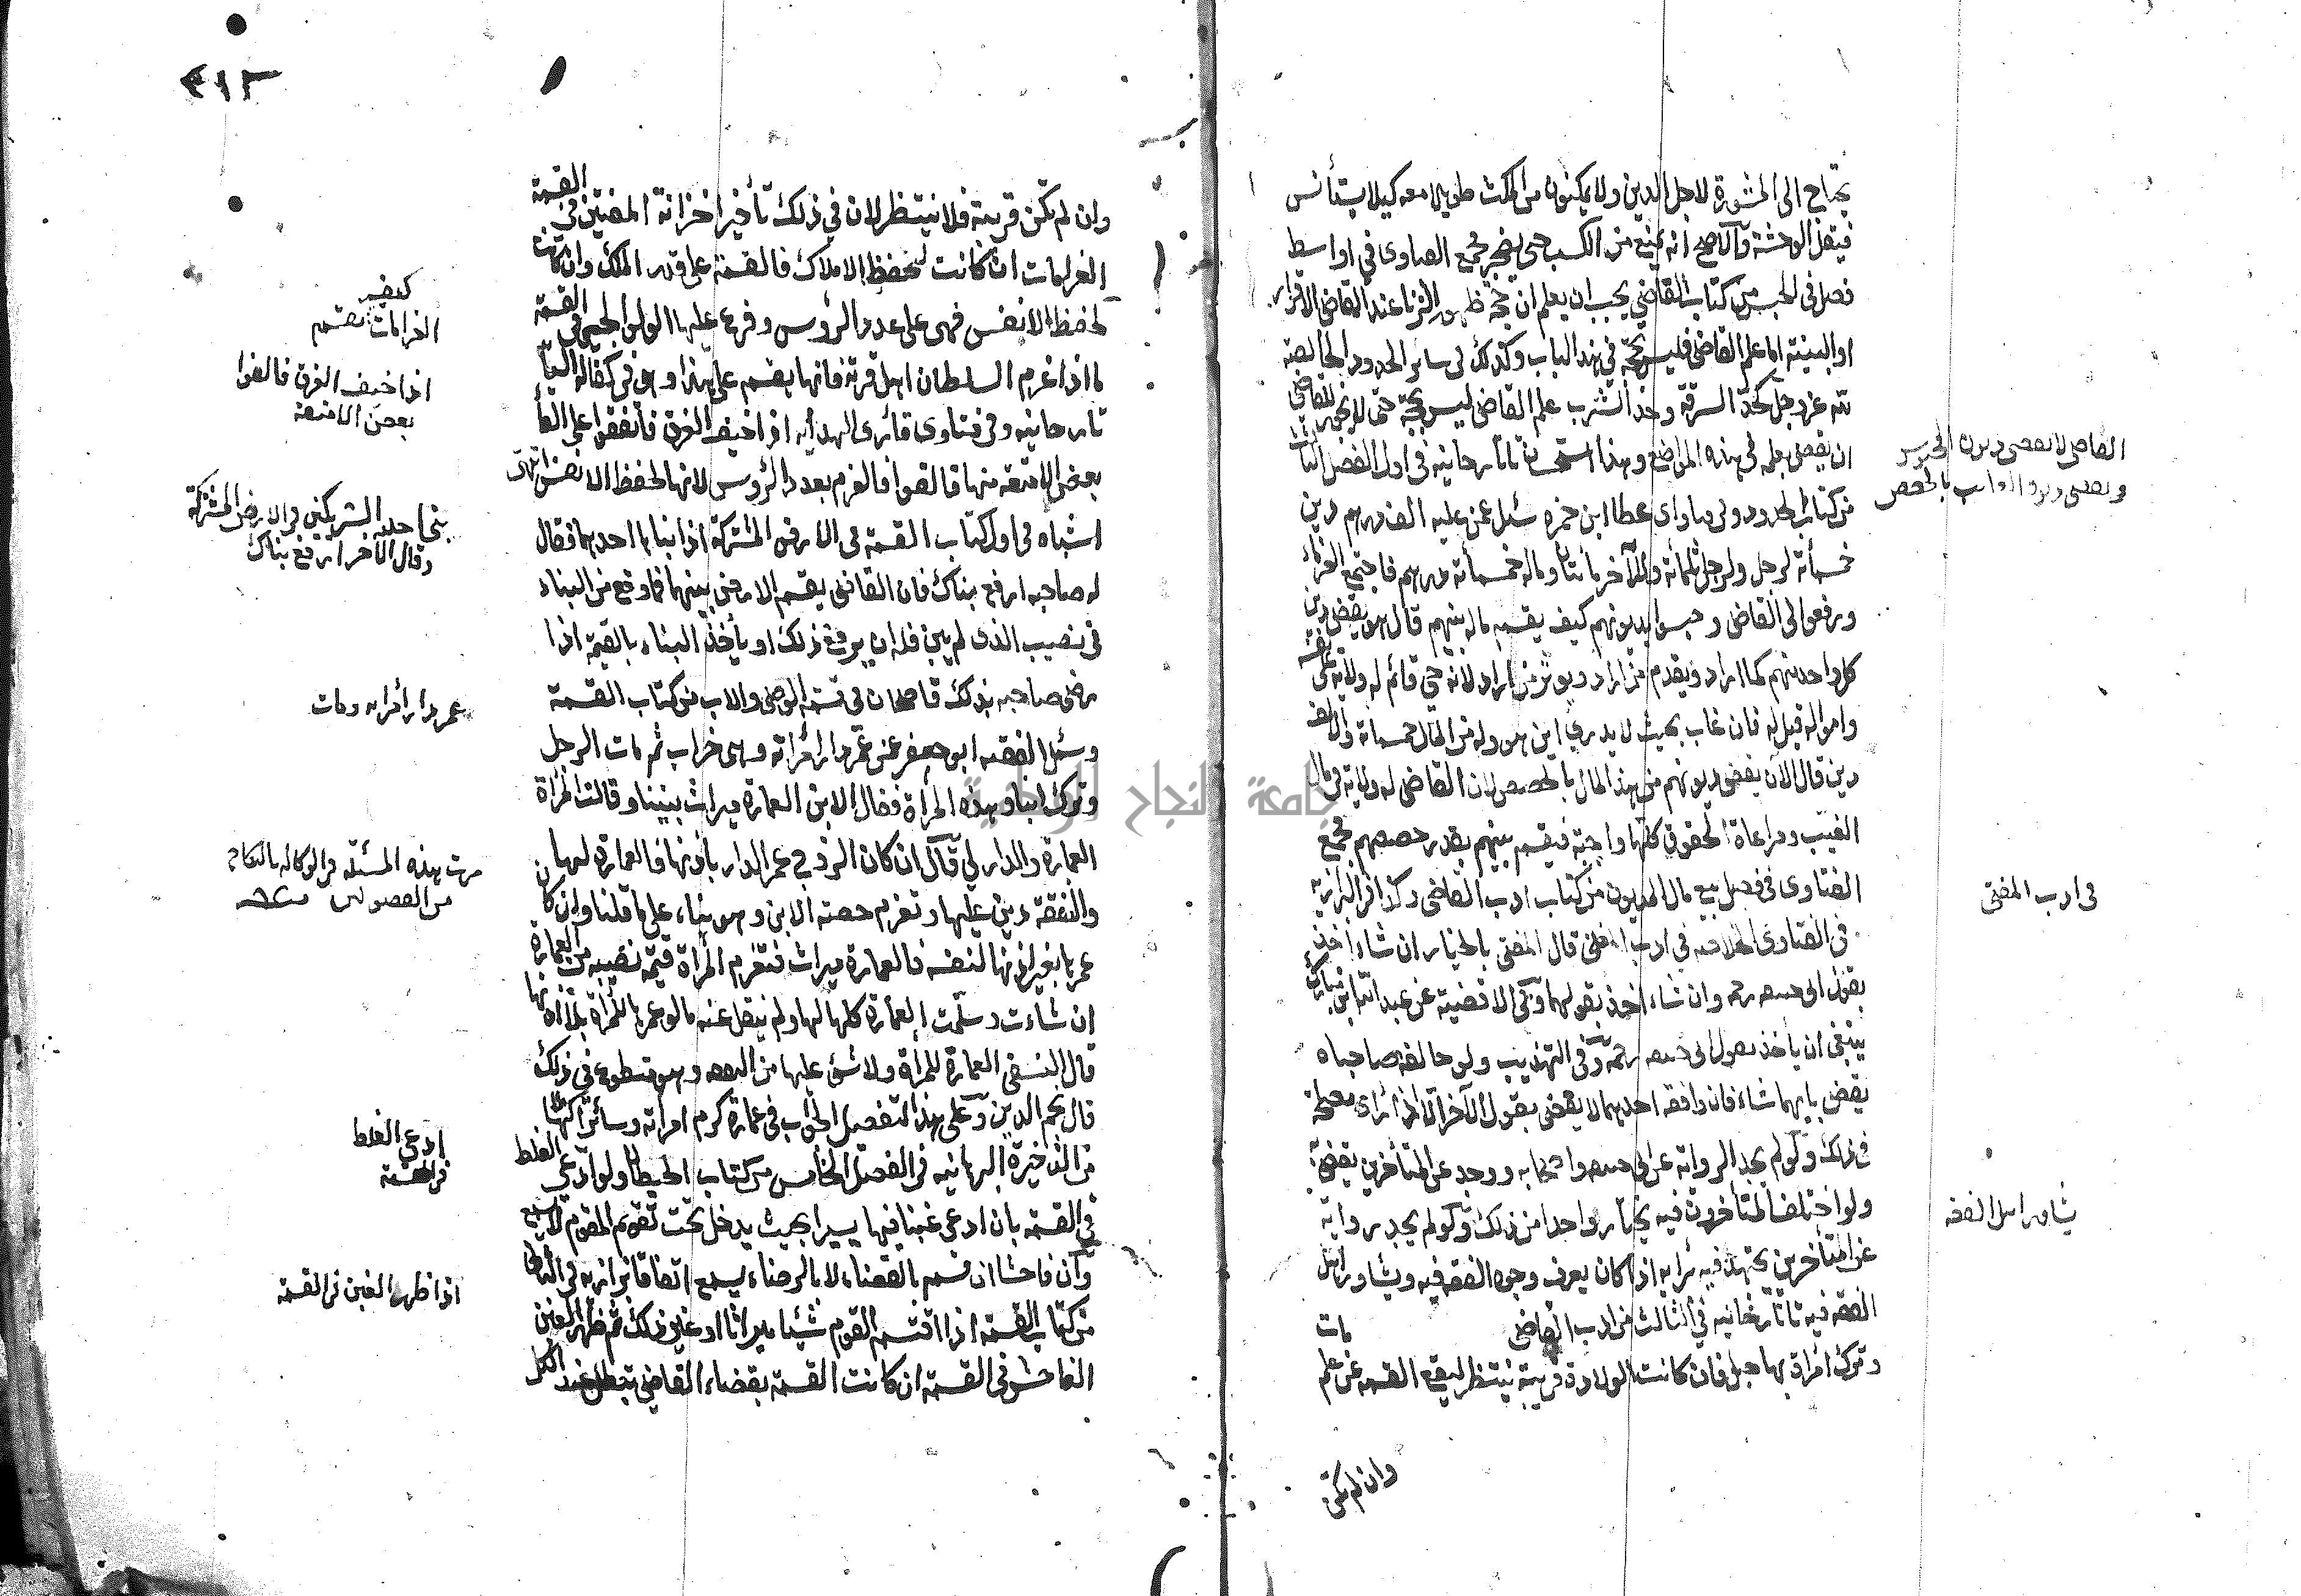 يحتاج الى المشورة لاجل الدين ولا يمكنون من المكث طويلا معه كيلا يستأنس
فيقل الوحشة والاصح انه يمنع من الكسب حتى يضجر مجمع الفتاوى في اواسط
فصل في الحبس من كتاب القاضي يجب ان يعلم ان حجة ظهور الزنا عند القاضي الاقرار
او البينة اما علم القاضي فليس بحجة في هذا الباب وكذلك في سائر الحدود الخالصة
لله عز وجل كحد السرقة وحد الشرب علم القاضي ليس بحجة حتى لا يجوز للقاضي
ان يقضي بعلمه في هذه المواضع وهذا استحسان تاتارخانيه في اول الفصل الثالث
من كتاب الحدود وفي فتاوى عطا ابن حمزه سئل عمن عليه الف درهم دين
خمسمأة لرجل ولرجل ثلثمائة وللآخر مائتان وماله خمسمأة درهم فاجتمع الغرماء
ورفعوا الى القاضي وحبسوا مديونهم كيف يقسم ماله بينهم قال هو يقضي دين
كل واحد منهم كما اراد ويقدم من اراد ويوثر من اراد لانه حي قائم له ولاية على نفسه
وامواله قيل له فان غاب بحيث لا يدري اين هو وله من المال خمسمأة والالف
دين قال الآن يقضي ديونهم من هذا المال بالحصص لان القاضي له ولاية في مال
الغيب ومراعاة الحقوق كلها واجبة فيقسم بينهم بقدر حصصهم مجمع
الفتاوى في فصل بيع مال المديون من كتاب ادب القاضي وكذا في البزازيه
في الفتاوى الخلاصه في ادب المفتي قال المفتي بالخيار ان شاء اخذ
بقول ابي حنيفه رحمه وان شاء اخذ بقولهما وفي الاقضية عن عبد الله ابن مبارك
ينبغي ان يأخذ بقول ابي حنيفه رحمه وفي التهذيب ولو خالفه صاحباه
يقضي بايهما شاء فان وافقه احدهما لا يقضي بقول الآخر الا اذا رأى مصلحة
في ذلك ولو لم يجد الرواية عن ابي حنيفه واصحابه ووجد عن المتأخرين يقضي به
ولو اختلف المتأخرون فيه يختار واحدا من ذلك ولو لم يجد رواية
عن المتأخرين يجتهد فيه برأيه اذا كان يعرف وجوه الفقه فيه ويشاور اهل
الفقه فيه تاتارخانيه في الثالث من ادب القاضي مات
وترك امرأة بها حبل فان كانت الولادة قريبة ينتظر ليقع القسمه عن علم
وان لم تكن
القاضي لا يقضي ديون المحبوس
ويقضي ديون الغائب بالحصص
في ادب المفتي
يشاور اهل الفقه
٢١٣
وان لم تكن قريبة فلا ينتظر لان في ذلك تأخيرا خزانة المفتين في القسمة
الغرامات ان كانت لحفظ الاملاك فالقسمة على قدر الملك وان كانت
لحفظ الانفس فهي على عدد الرؤس وفرع عليها الولوالجي في القسمة
ما اذا غرم السلطان اهل قرية فانها يقسم على هذا وهو في كفالة
تاتارخانيه وفي فتاوى قارئ الهدايه اذا خيف الغرق فاتفقوا على القاء
بعض الامتعة منها فالقوا فالغرم بعدد الرؤس لانها لحفظ الانفس انتهى
اشباه في اول كتاب القسمة في الارض المشتركة اذا بنا بها احدهما فقال
له صاحبه ارفع بناك فان القاضي يقسم الارض بينهما فما وقع من البناء
في نصيب الذى لم يبن فله ان يرفع ذلك او يأخذ البناء بالقيمة اذا
رضي صاحبه بذلك قاضيخان في قسمة الوصي والاب من كتاب القسمة
وسئل الفقيه ابو جعفر عن عمر دار امرأته وهي خراب ثم مات الرجل
وترك ابنا وهذه المرأة فقال الابن العمارة ميراث بيننا وقالت المرأة
العمارة والدار لي قال ان كان الزوج عمر الدار باذنها فالعمارة لها
والنفقة دين عليها وتغرم حصته الابن وهو بناء على ما قلنا وان كان
عمرها بغير اذنها لنفسه فالعمارة ميراث فتغرم المرأة قيمة نصيبه من العمارة
ان شاءت وسلمت العمارة كلها لها ولم ينقل عنه ما لو عمرها للمرأة بلا اذنها
قال النسفي العمارة للمرأة ولا شئ عليها من النفقه وهو متطوع في ذلك
قال نجم الدين وعلى هذا التفصيل الجواب في عمارة كرم امرأته وسائر املاكها
من الذخيرة البرهانيه في الفصل الخامس من كتاب الحيطان ولو ادعى الغلط
في القسمة بان ادعى غبنا فيها يسيرا بحيث يدخل تحت تقويم المقوم لا يسمع
وان فاحشا ان قسم بالقضاء لا بالرضاء يسمع اتفاقا بزازيه في الثاني
من كتاب القسمة اذا اقتسم القوم شيئا ميراثا او غير ذلك ثم ظهر الغبن
الفاحش في القسمة ان كانت القسمة بقضاء القاضي تبطل عند الكل
كيف
الغرامات تقسم
اذا خيف الغرق فالقوا
بعض الامتعة
بنى احد الشريكين في الارض المشتركة
وقال الآخر ارفع بناك
عمر دار امرأته ومات
مرت هذه المسئلة في الوكالة بالنكاح
من الفصولين
ادعى الغلط
في القسمة
اذا ظهر الغبن في القسمة
جامعة النجاح الوطنية